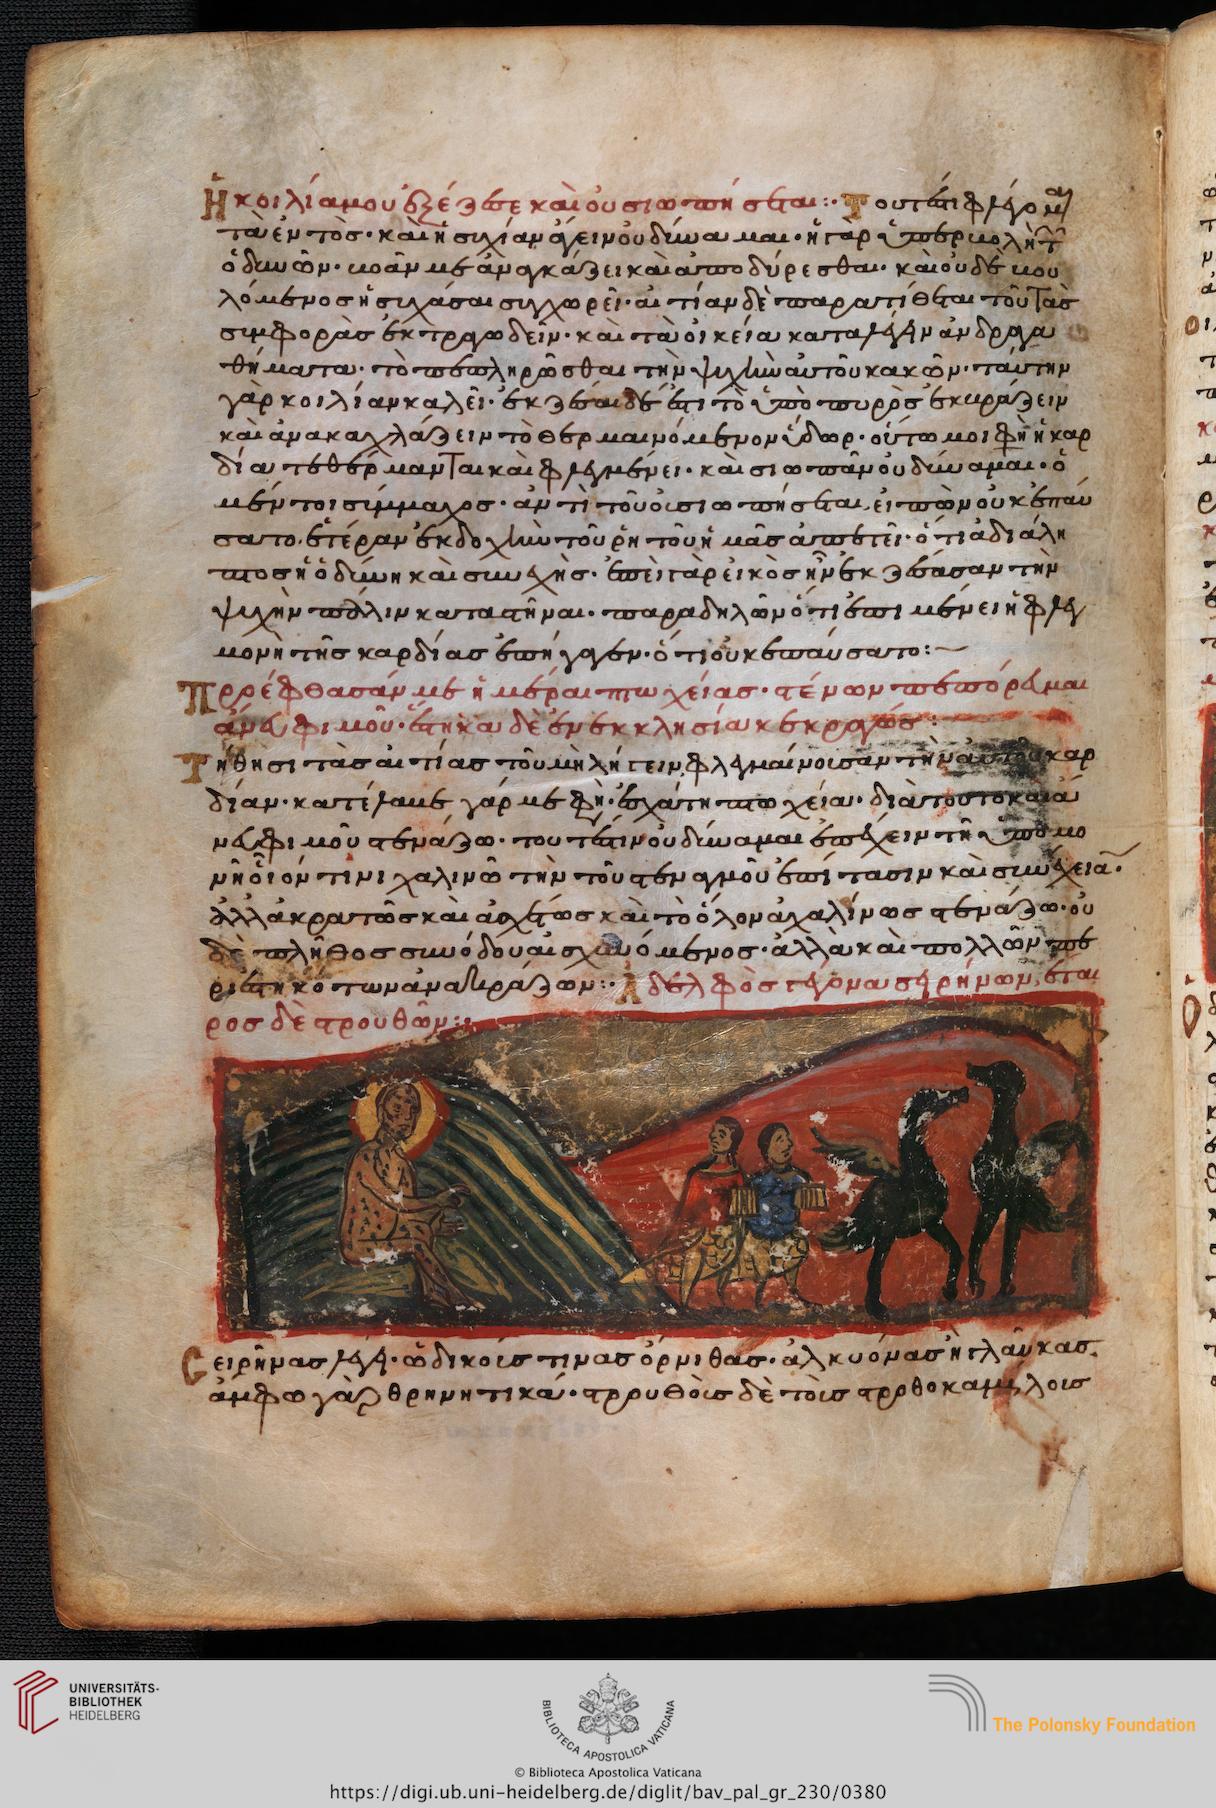 Ἡ κοιλία μου ἐξέζεσε καὶ οὐ σιωπήσεται: Τουτέστι φλέγομαι
τὰ ἐντὸς· καὶ ἡσυχίαν ἄγειν οὐ δύναμαι· ἡ γὰρ ὑπερβολὴ τῶν
ὀδυνῶν· βοᾶν με ἀναγκάζει καὶ ἀποδύρεσθαι· καὶ οὐδὲ βου
λόμενος ἡσυχάσαι συγχωρεῖ· αἰτίαν δὲ παρατίθεται τοῦ τὰς
συμφορὰς ἐκτραγωδεῖν· καὶ τὰ οἰκεῖα καταλέγειν ἀνδραγα
θήματα· τὸ πεπληρῶσθαι τὴν ψυχὴν αὐτοῦ κακῶν· ταύτην
γὰρ κοιλίαν καλεῖ· ἐκζέσαι δέ ἐστι τὸ ὑπὸ πυρὸς ἐκβράζειν
καὶ ἀνακαχλάζειν τὸ θερμαινόμενον ὕδωρ· οὕτω μοι φησὶν ἡ καρ
δία τεθέρμανται καὶ φλεγμαίνει· καὶ σιωπᾶν οὐ δύναμαι· ὁ
μέντοι σύμμαχος· ἀντὶ τοῦ οὐ σιωπήσεται, εἰπὼν οὐκ ἐπαύ
σατο, ἑτέραν ἐκδοχὴν τοῦ ῥητοῦ ἡμᾶς ἀπαιτεῖ· ὅτι ἀδιάλη
πτος ἡ ὀδύνη καὶ συνεχής· ἐπεὶ γὰρ εἰκὸς ἦν ἐκζέσασαν τὴν
ψυχὴν πάλιν καταστῆναι· παραδηλῶν ὅτι ἐπιμένει ἡ φλεγ
μονὴ τῆς καρδίας ἐπήγαγεν· ὅτι οὐκ ἐπαύσατο:
Προέφθασάν με ἡμέραι πτωχείας· στένων πεπόρευμαι
ἄνευ φιμοῦ· ἕστηκα δὲ ἐν ἐκκλησία κεκραγώς:
Τίθησι τὰς αἰτίας τοῦ μὴ λήγειν φλεγμαίνουσαν τὴν αὐτοῦ καρ
δίαν· κατέλαβε γάρ με φησὶν ἐσχάτη πτωχεία· διὰ τοῦτο καὶ ἄ
νευ φιμοῦ στενάζω· τουτέστιν οὐ δύναμαι ἐπέχειν τῆ ὑπομο
νῆ οἷόν τινι χαλινῶ τὴν τοῦ στεναγμοῦ ἐπίτασιν καὶ συνέχειαν·
ἀλλ' ἀκρατῶς καὶ ἀσχέτως καὶ τὸ ὅλον ἀχαλίνως στενάζω· οὐ
δὲ πλῆθος συνόδου αἰσχυνόμενος· ἀλλὰ καὶ πολλῶν πε
ριεστηκότων ἀνακράζων: Ἀδελφὸς γέγονα σειρήνων, ἑταῖ
ρος δὲ στρουθῶν:
Σειρῆνας λέγει· ὠδικούς τινας ὄρνιθας· ἀλκυόνας ἢ γλαύκας.
ἄμφω γὰρ θρηνητικά· στρουθοὺς δὲ τοὺς στρουθοκαμήλους
UNIVERSITÄTS-
BIBLIOTHEK
HEIDELBERG
BIBLIOTECA APOSTOLICA VATICANA
The Polonsky Foundation
© Biblioteca Apostolica Vaticana
https://digi.ub.uni-heidelberg.de/diglit/bav_pal_gr_230/0380